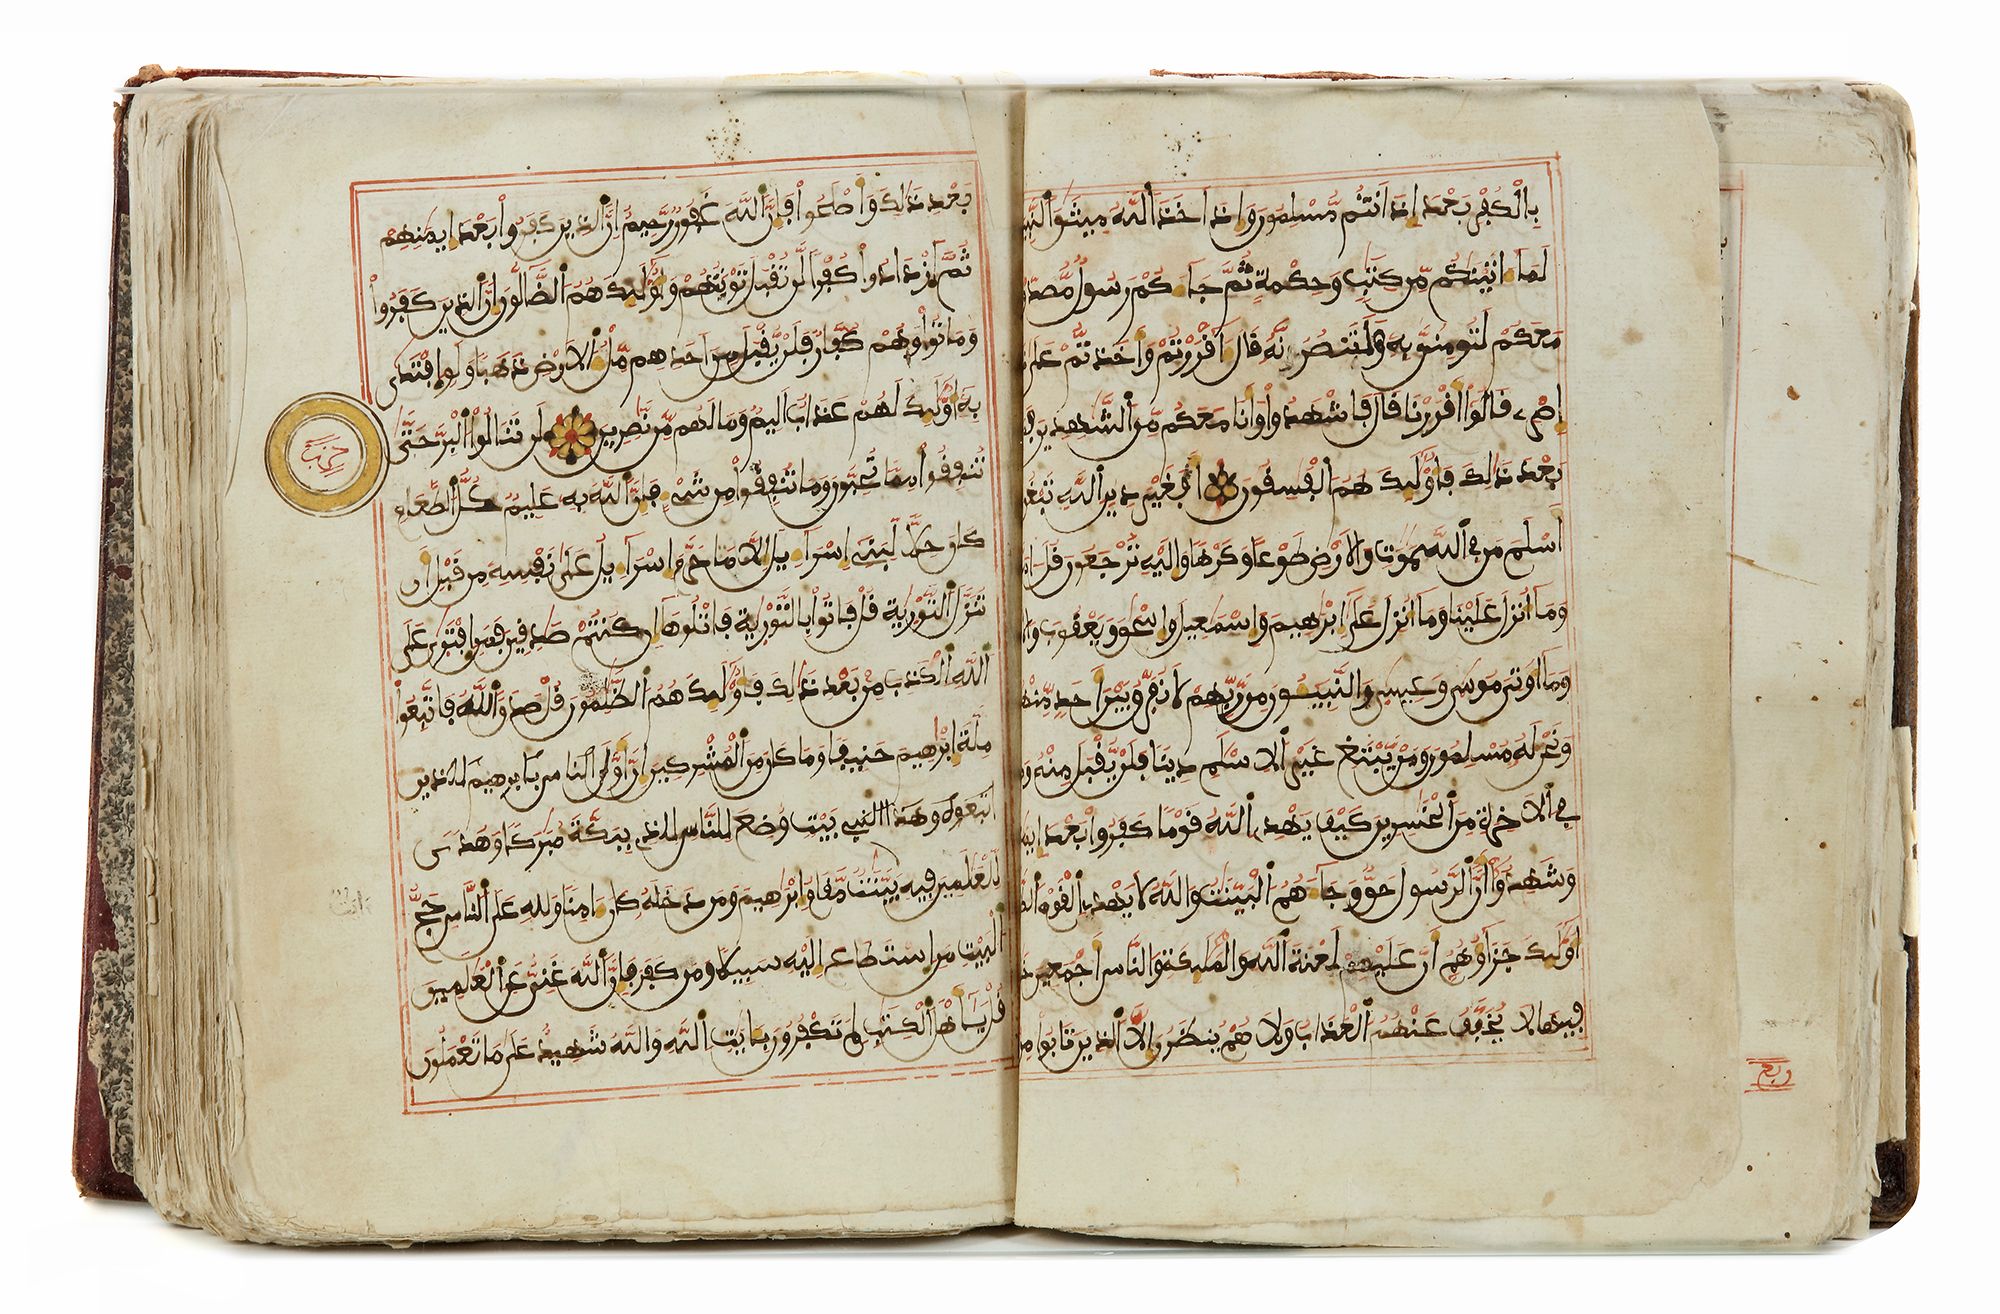 بالكفر بعد إذ أنتم مسلمون وإذ اخذ الله ميثو النبي
لما اتيتكم من كتب وحكمة ثم جاءكم رسول مصدو
معكم لتومنن به ولتنصرنه قال آفررتم وأخذتم على
إصرى فالوا أفررنا فال فاشهدوا وأنا معكم من الشهدين
بعد ذالك فأوليك هم الفسفون افغير دين الله تبغو
أسلم من في السموت والارض طوعا وكرها وإليه ترجعون فل
وما أنزل علينا وما أنزل على إبرهيم وإسمعيل وإسحو ويعفوب
وما أوتى موسى وعيسى والنبيون من ربهم لا نفرو بين أحد منهم
ونحن له مسلمون ومن يبتغ غير الاسلم دينا فلن يفبل منه
في الاخرة من الخسرين كيف يهدى الله فوما كفروا بعد
وشهدوا أن الرسول حو وجاءهم البينت والله لا يهدى الفوم
أوليك جزاؤهم أن عليهم لعنة الله والمليكة والناس أجمعين
فيها لا يخفف عنهم العذاب ولا هم ينظرون إلا الذين تابوا من
ربع
بعد ذالك وأصلحوا فإن الله غفور رحيم إن الذين كفروا بعد إيمنهم
ثم ازدادوا كفرا لن تفبل توبتهم وأوليك هم الضالون إن الذين كفروا
وماتوا وهم كفار فلن يفبل من احدهم مل الارض ذهبا ولو إفتدى
به أوليك لهم عذاب اليم وما لهم من نصرين لن تنالوا البر حتى
تنففوا مما تحبون وما تنففوا من شىء فإن الله به عليم كل الطعام
كان حلا لبنى إسراءيل إلا ما حرم إسراءيل على نفسه من فبل أن
تنزل التورية فل فاتوا بالتورية فاتلوها إن كنتم صدفين فمن إفترى على
الله الكذب من بعد ذالك فأوليك هم الظلمون فل صدو الله فاتبعوا
ملة إبرهيم حنيفا وما كان من المشركين إن أولى الناس بإبرهيم للذين
اتبعوه وهذا النبى بيت وضع للناس للذى ببكة مبركا وهدى
للعلمين فيه ءايت بينت مفام إبرهيم ومن دخله كان ءامنا ولله على الناس حج
البيت من إستطاع إليه سبيلا ومن كفر فإن الله غنى عن العلمين
فل يأهل الكتب لم تكفرون بأيت الله والله شهيد على ما تعملون
حزب